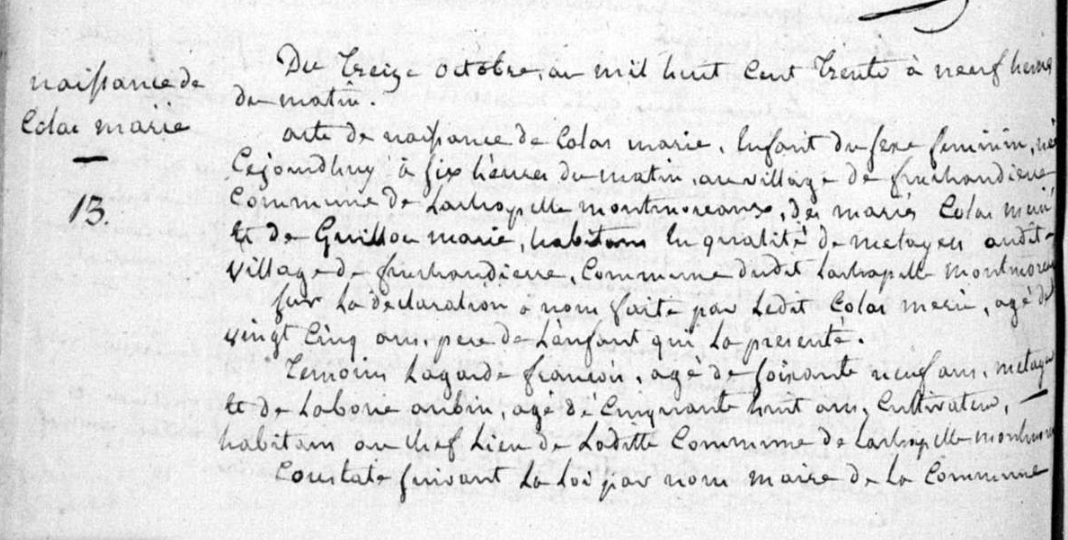 naissance de
Colas marie
13.
Du treize octobre, an mil huit cent trente à neuf heures
du matin.
acte de naissance de Colas marie, Enfant du sexe feminin, né
Cejourdhuy à six heures du matin, au village de
Commune de Lachapelle montmoreaux, des mariés Colas meri
Et de Guillou marie, habitans En qualité de metayers audit
village de Commune dudit Lachapelle montmoreau
sur La déclaration à nous faite par Ledit Colas meri, agé de
vingt Cinq ans, pere de L'enfant qui La presenté.
Temoins Lagarde francois, agé de soixante neuf ans, metayer
Et de Laborie aubin, agé de Cinquante huit ans, Cultivateur,
habitans au chef Lieu de Laditte Commune de Lachapelle montmore
Constate suivant La Loi par nous maire de La Commune